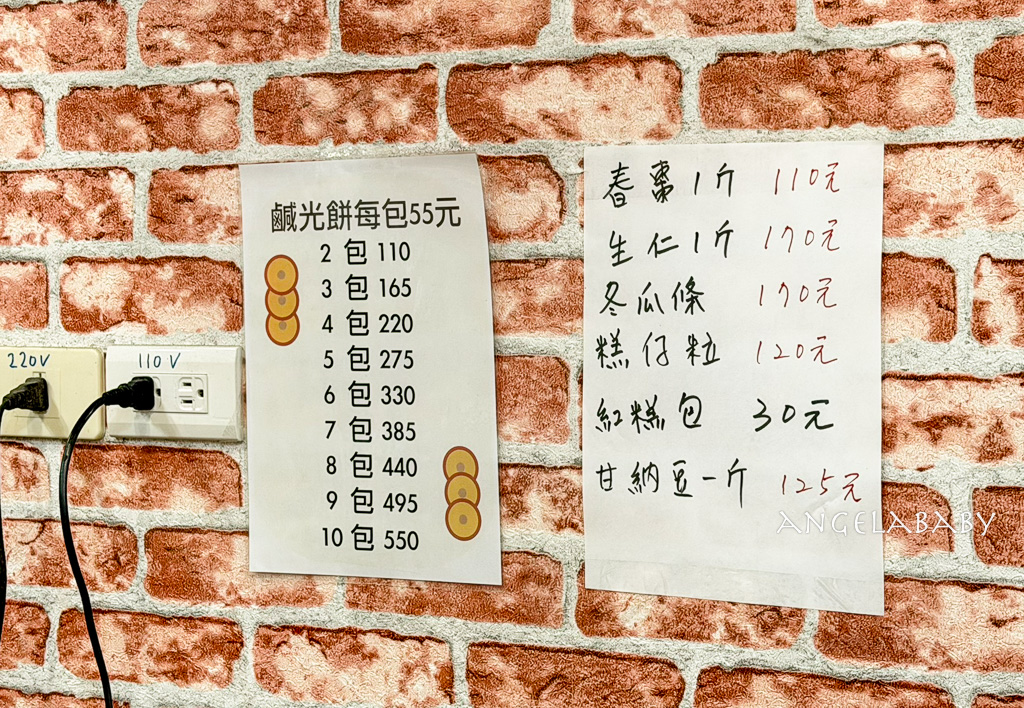 鹹光餅每包55元
2 包 110
3 包 165
4 包 220
5 包 275
6 包 330
7 包 385
8 包 440
9 包 495
10 包 550
春棗1斤 110元
生仁1斤 170元
冬瓜條 170元
糕仔粒 120元
紅糕包 30元
甘納豆一斤 125元
220V
110V
ANGELABABY